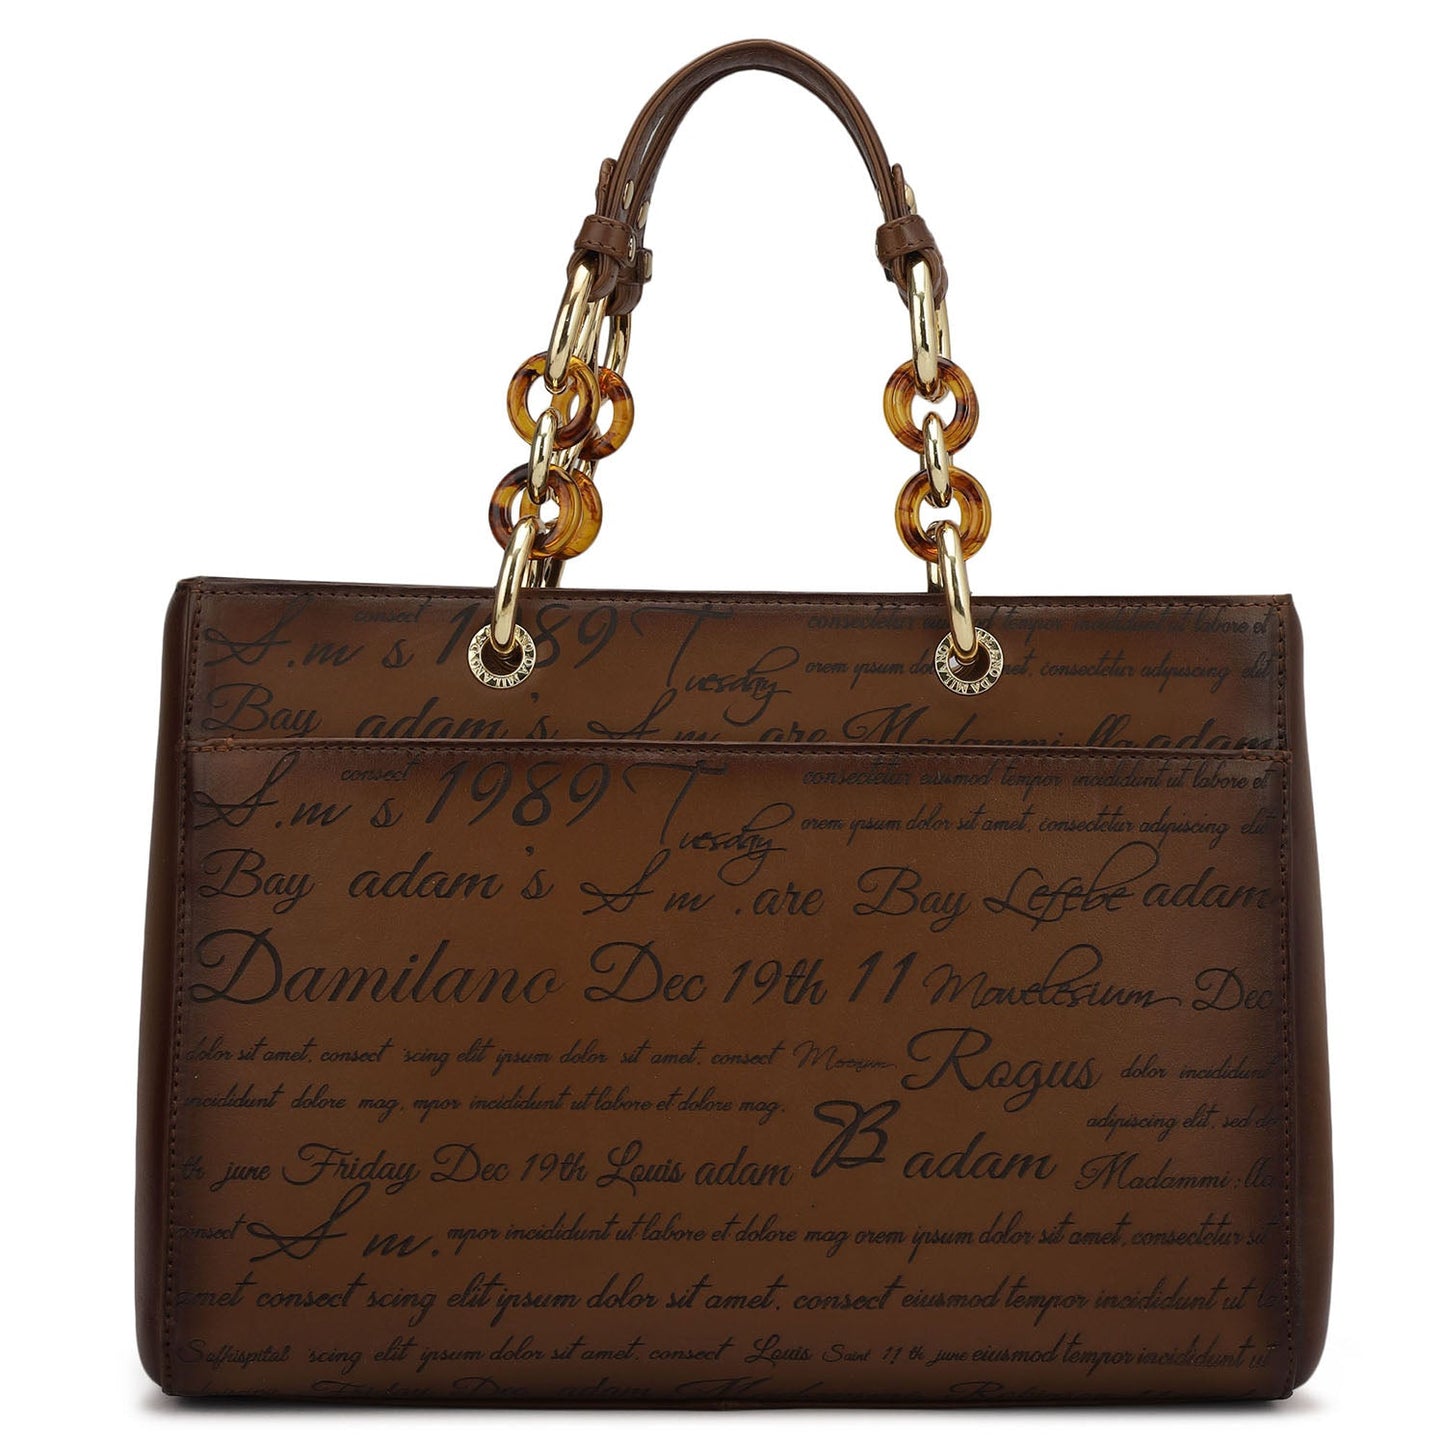 consect
S.m s 1989 Tuesday
consectetur eiusmod tempor incididunt ut labore et
orem ipsum dolor amet, consectetur adipiscing elit
DA MILANO
DA MILANO
Bay adam's S m .are Madammi lla adam
consect
S.m s 1989 Tuesday
consectetur eiusmod tempor incididunt ut labore et
orem ipsum dolor sit amet, consectetur adipiscing elit
Bay adam's S m .are Bay Lefebe adam
Damilano Dec 19th 11 Mowelesium Dec
dolor sit amet, consect scing elit ipsum dolor sit amet, consect Rogus dolor incididunt
incididunt dolore mag, mpor incididunt ut labore et dolore mag,
adipiscing elit, sed do
th june Friday Dec 19th Louis adam B adam Madammi:lla
consect S m. mpor incididunt ut labore et dolore mag orem ipsum dolor sit amet, consectetur sit
amet consect scing elit ipsum dolor sit amet, consect eiusmod tempor incididunt ut
Suffhispital scing elit ipsum dolor sit amet, consect Louis Saint 11 th june eiusmod tempor incididunt ut